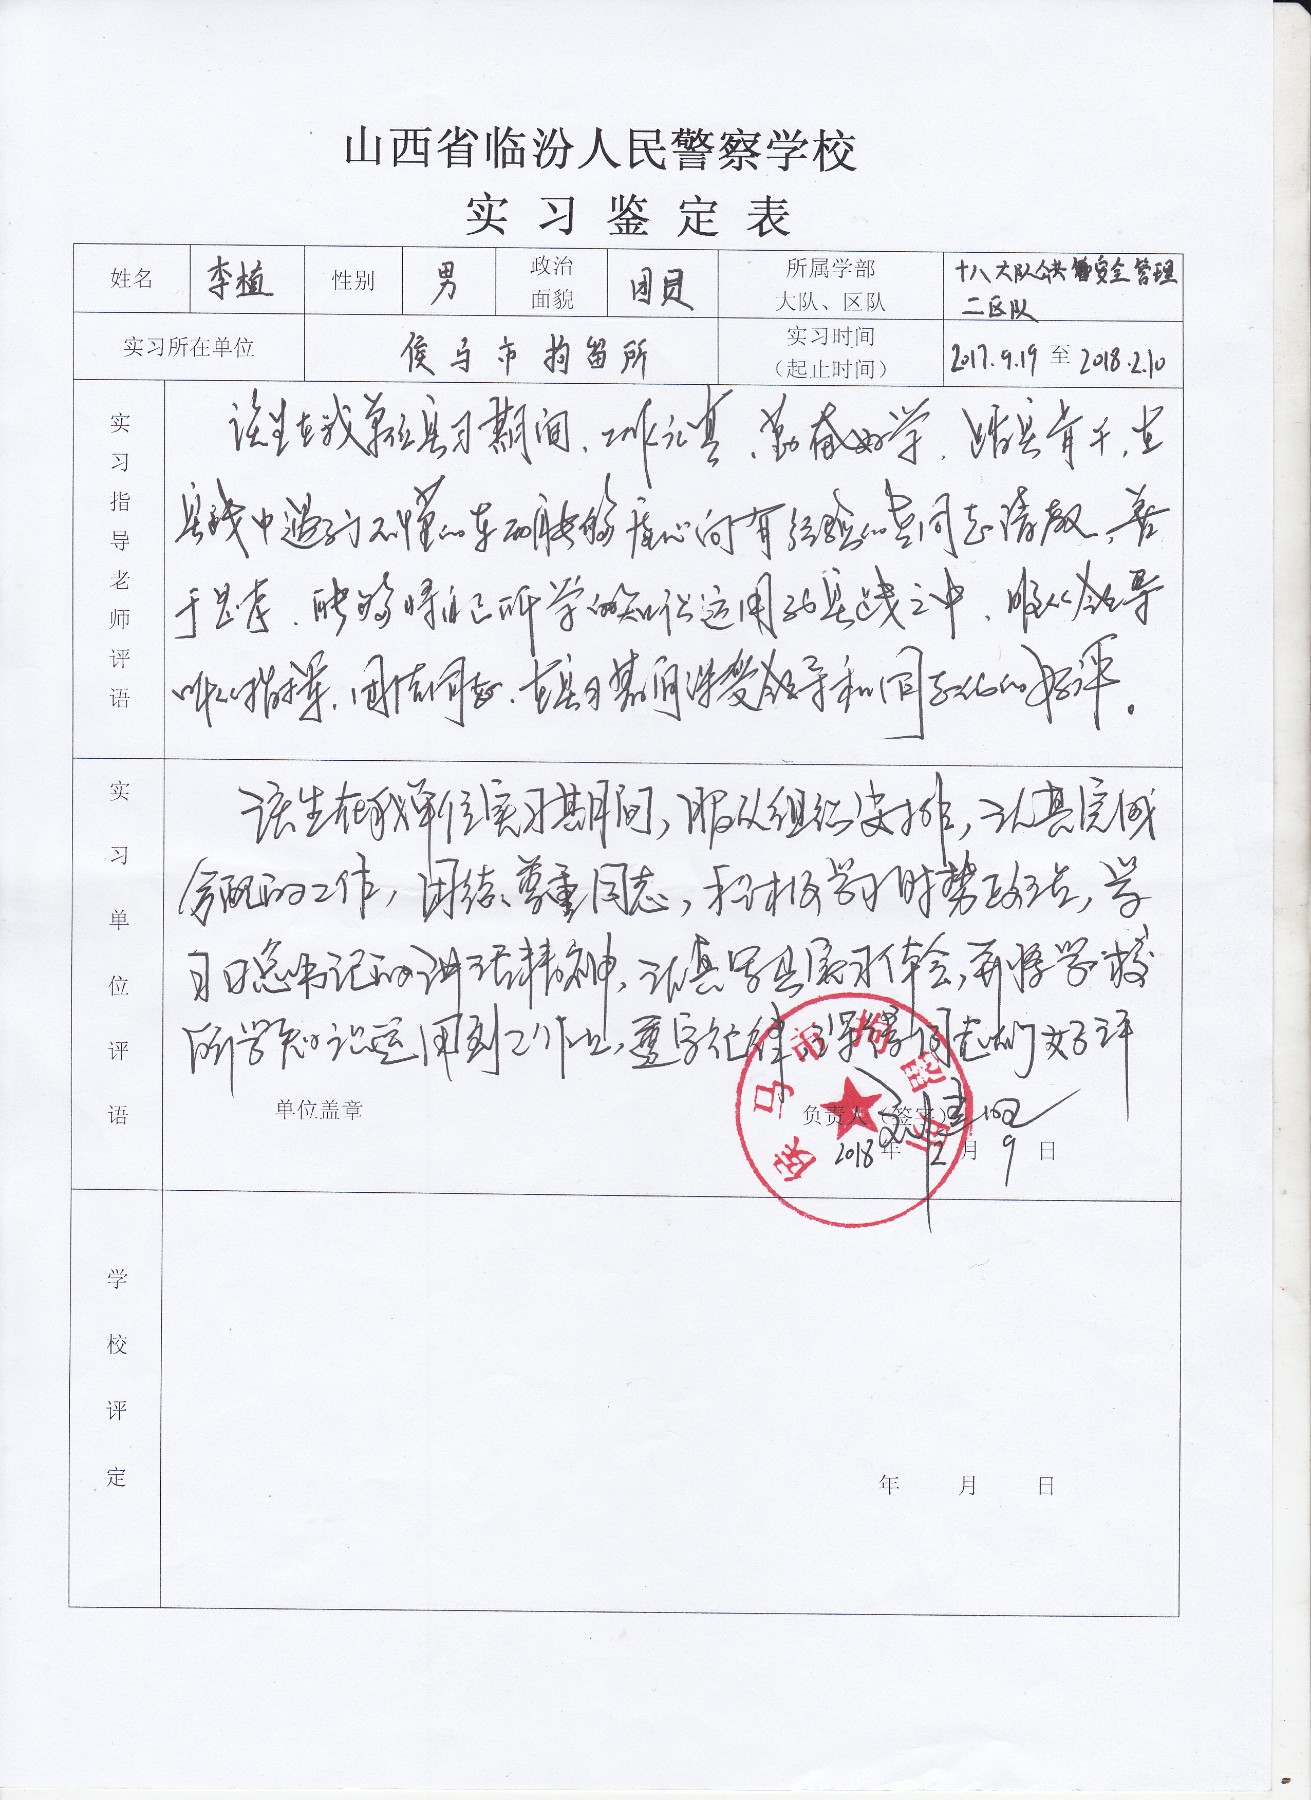 山西省临汾人民警察学校
实习鉴定表
姓名 李植 性别 男 政治面貌 团员 所属学部大队、区队 十八大队公共安全管理二区队
实习所在单位 侯马市拘留所 实习时间（起止时间） 2017.9.19 至 2018.2.10
实习指导老师评语
该生在我单位实习期间、工作认真、勤奋好学、踏实肯干，在
实践中遇到不懂的东西能够虚心向有经验的老同志请教，善
于思考、能够将自己所学的知识运用到实践之中、服从领导
听从指挥、团结同志、在实习期间深受领导和同志们的好评。
实习单位评语
该生在我单位实习期间，服从组织安排，认真完成
分配的工作，团结、尊重同志，积极学习时势政治，学
习习总书记的讲话精神，认真写实习体会，并将学校
所学知识运用到工作上，遵守纪律，深得同志们好评
单位盖章 负责人（签字）
2018年2月9日
侯马市拘留所
学校评定
年 月 日